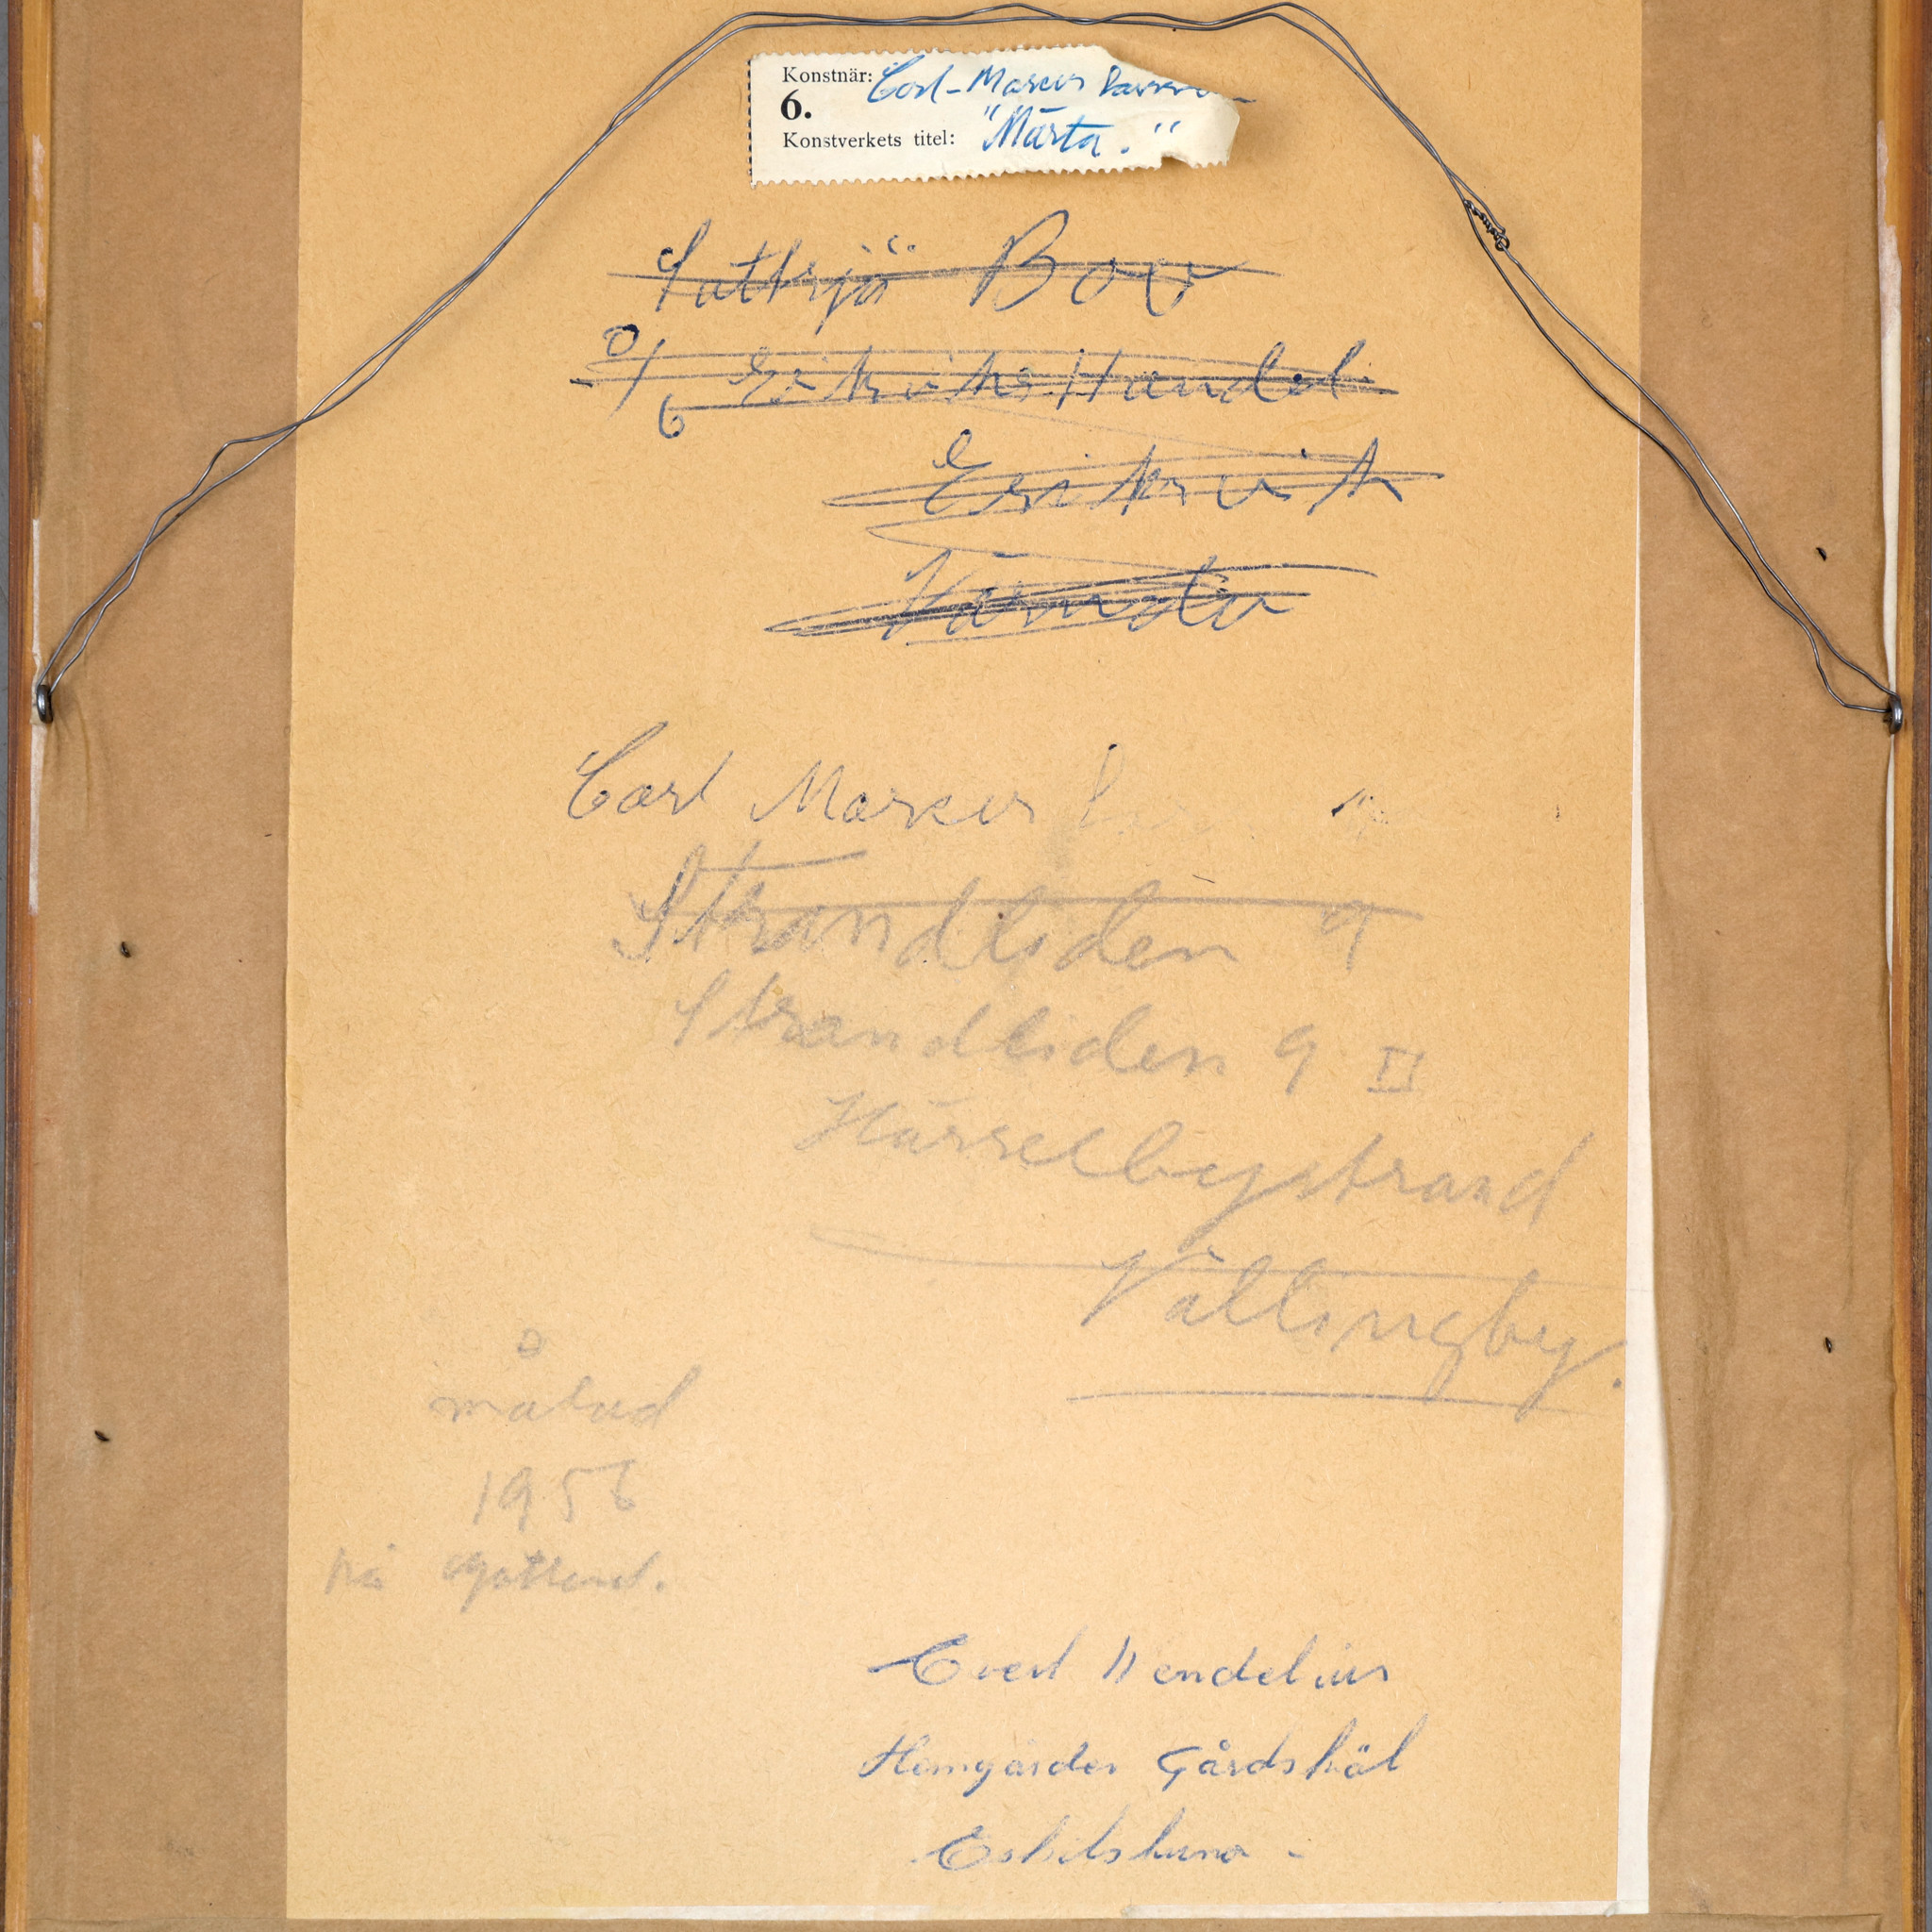 Konstnär: Carl-Marcus
6.
Konstverkets titel: "Märta."
Boo
Handel
Eriksvik
Värmdö
Carl Marcus
Strandliden 9
Strandliden 9 II
Hässelbystrand
Vällingby.
målad
1956
på Gottland.
Evert Wendelius
Hemgården Gårdskäl
Eskilstuna -